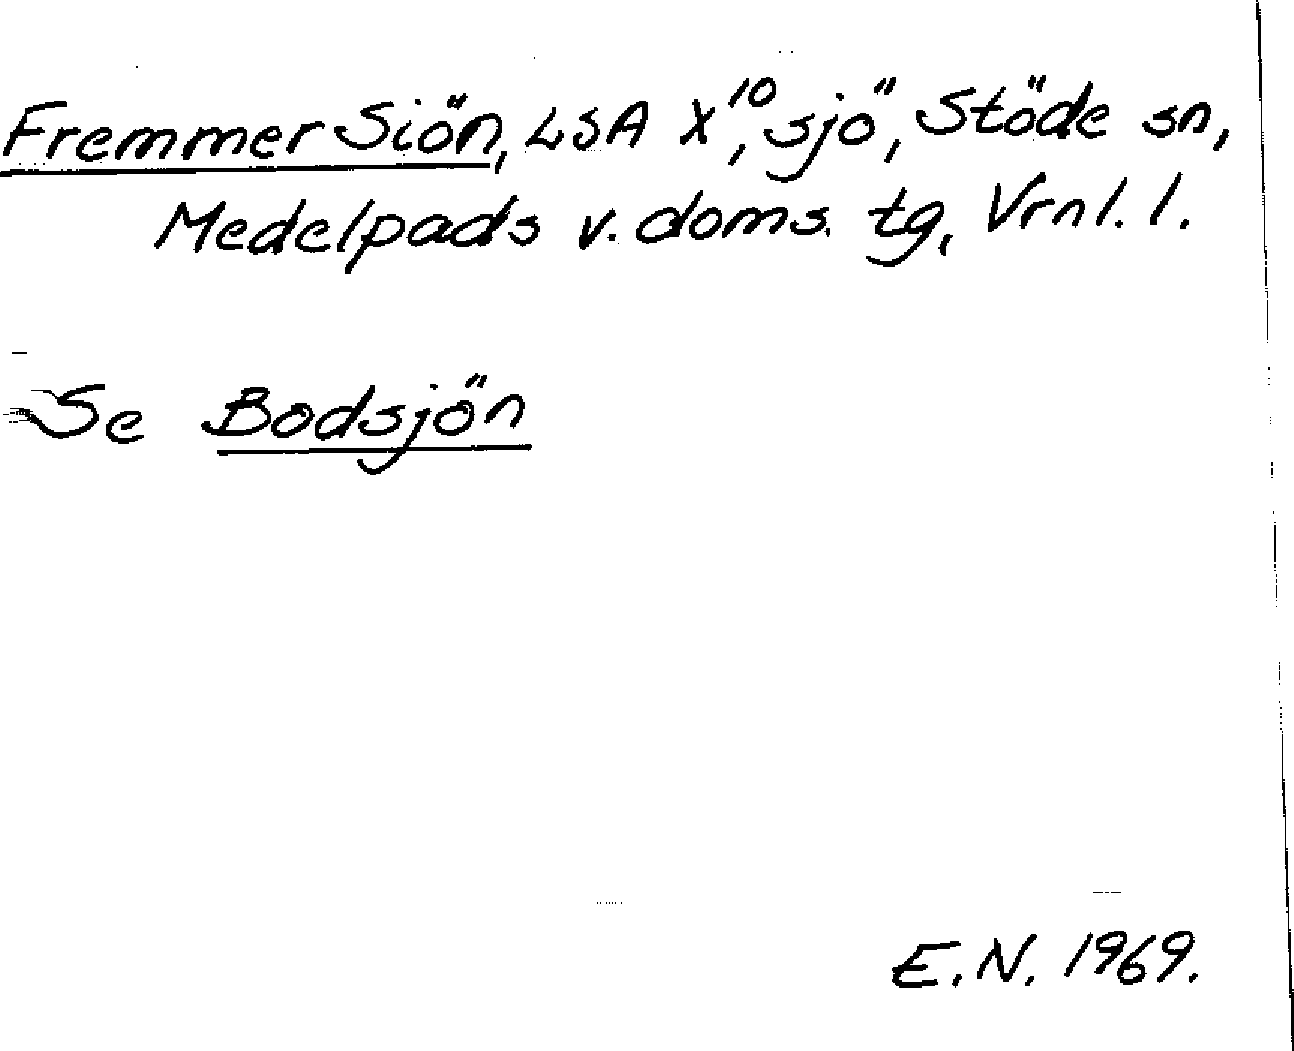 Fremmer Siön, LSA X¹⁰, sjö, Stöde sn,
Medelpads v. doms. tg, Vrnl. l.
Se Bodsjön
E.N. 1969.